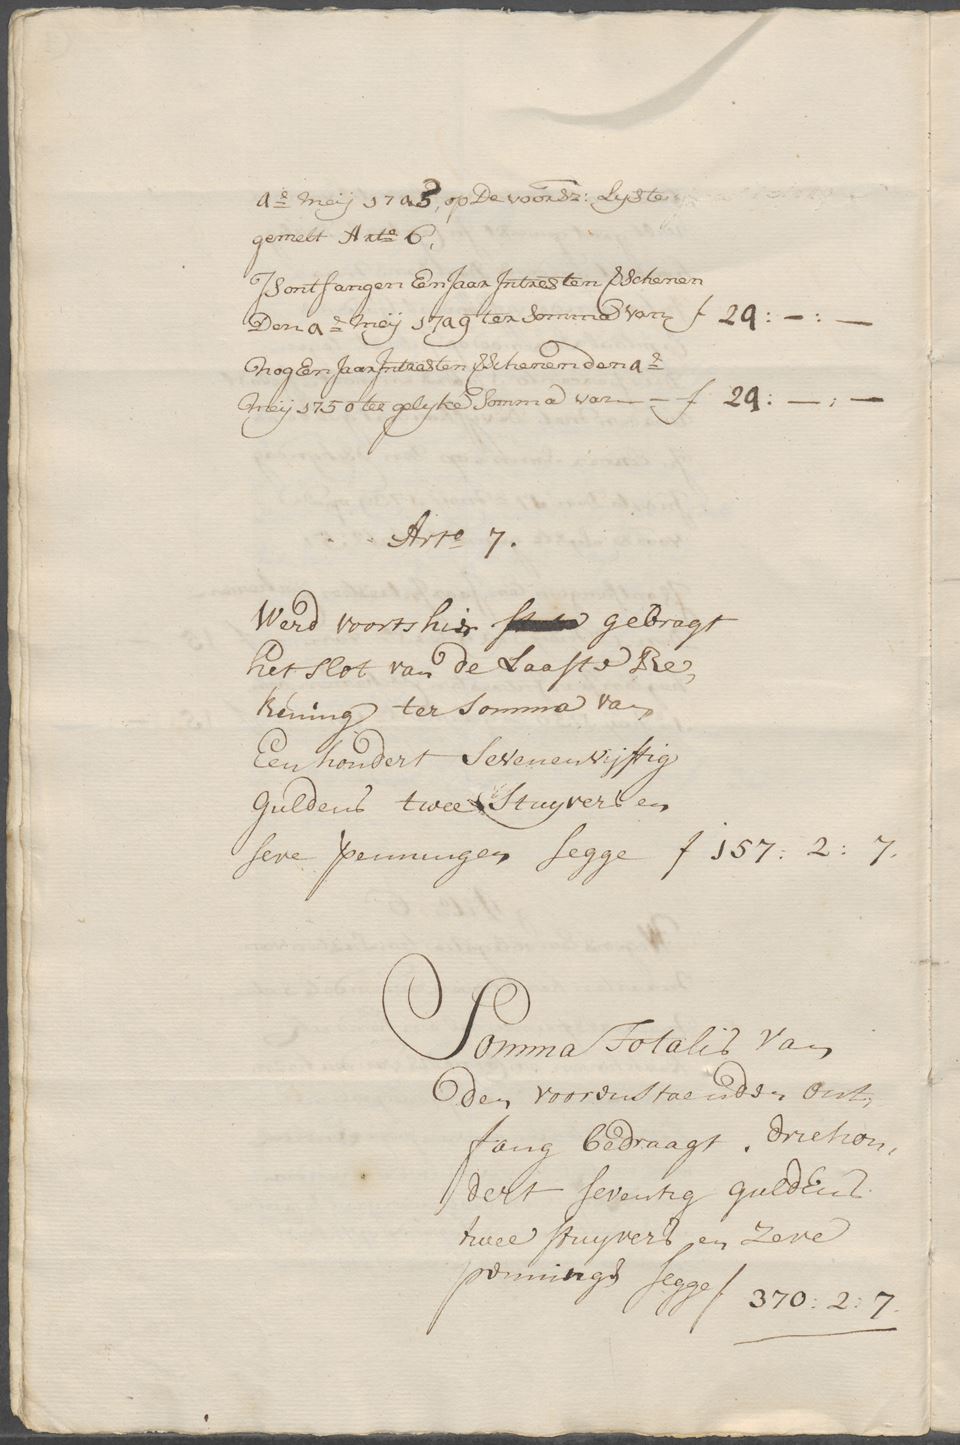 4e Meij 1743, op De voorsz: Lyste
gemelt Arto 6,
Is ontfangen En Jaar Intresten Verschenen
Den 4e Meij 1749 ter Somma van f 24:—:—
Nog En Jaar Intresten Verschenen den 4e
Meij 1750 ter gelyke Somma van — f 24:—:—
Arto 7.
Werd voorts hier gebragt
het slot van de Laaste Re,
kening ter Somma van
Een hondert Sevenenvijftig
Guldens twee Stuyvers en
seve penningen segge f 157:2:7.
Somma Totalis van
den voorenstaenden ont,
fang bedraagt. driehon,
dert seventig guldens
twee stuyvers en zeve
pennings segge f 370:2:7.